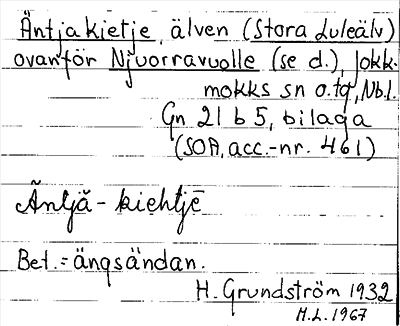 Äntjakietje, älven (Stora Luleälv)
ovanför Njuorravuolle (se d.), Jokk-
mokks sn o. tg, Nb.l.
Gn 21 b 5, bilaga
(SOA, acc.-nr. 461)
Äntjă-kiehtjē
Bet. = ängsändan.
H. Grundström 1932
M.L. 1967